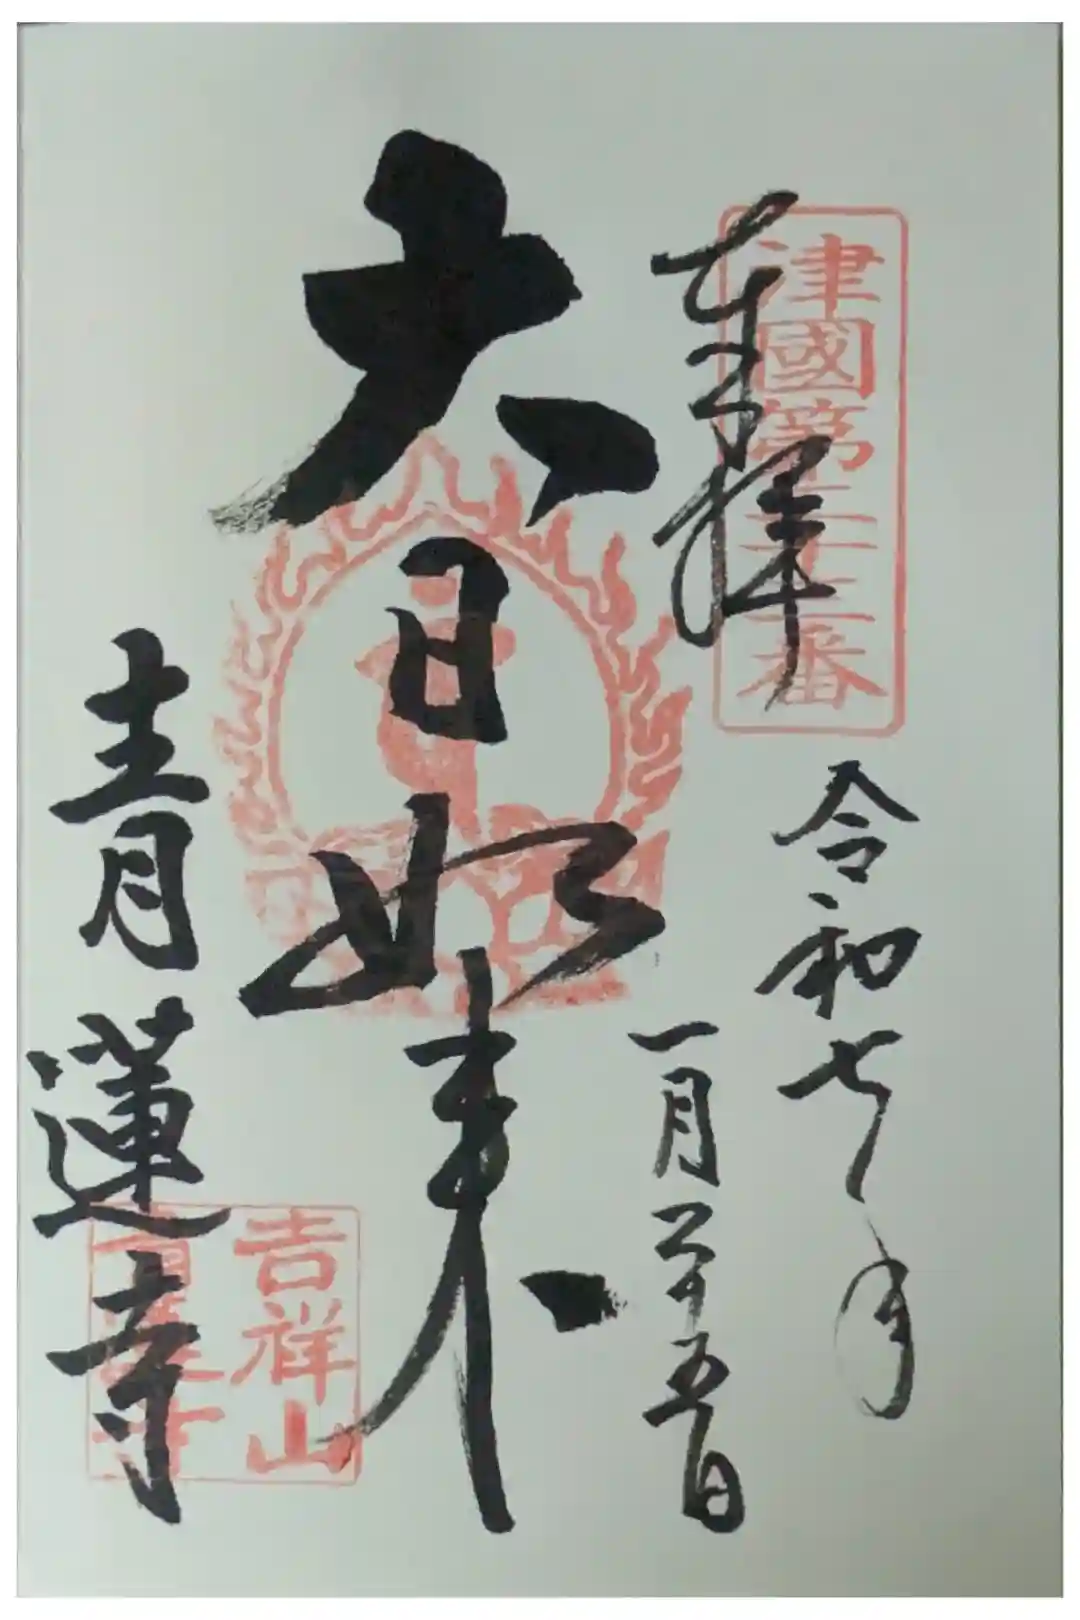 津國第二十三番
奉拝
令和七年
一月二十五日
大日如来
青蓮寺
吉祥山
青蓮寺